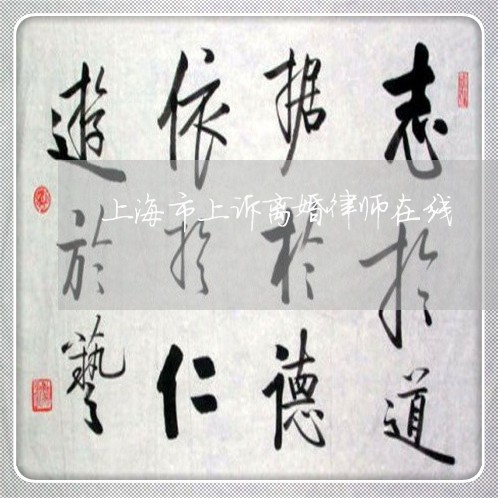 志於道
据於德
依於仁
遊於藝
上海市上诉离婚律师在线